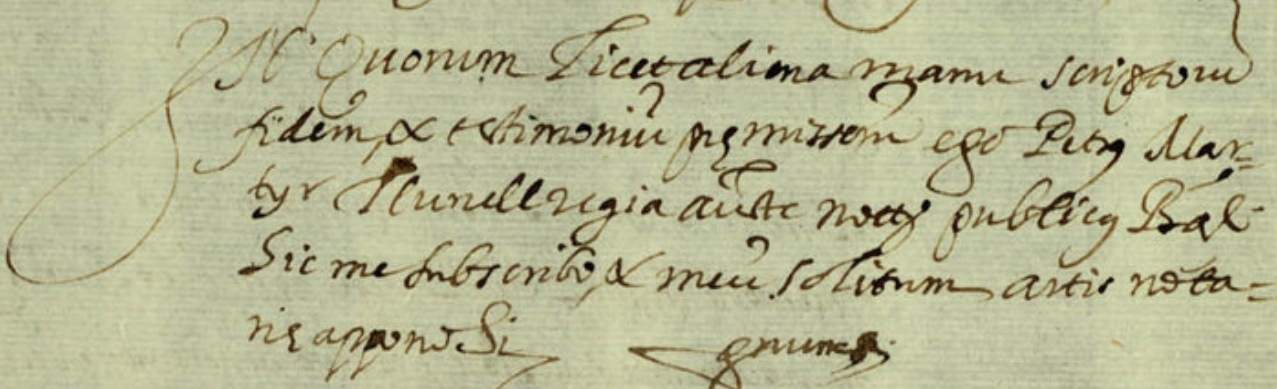 In Quorum Licet aliena manu scriptorū
fidem, & testimoniū pręmissorū ego Petrꝰ Mar=
tyr Llunell regia aūte nottꝰ publicꝰ Bar̄
Sic me subscribo, & meū solitum artis nota=
rię appono Si gnum.